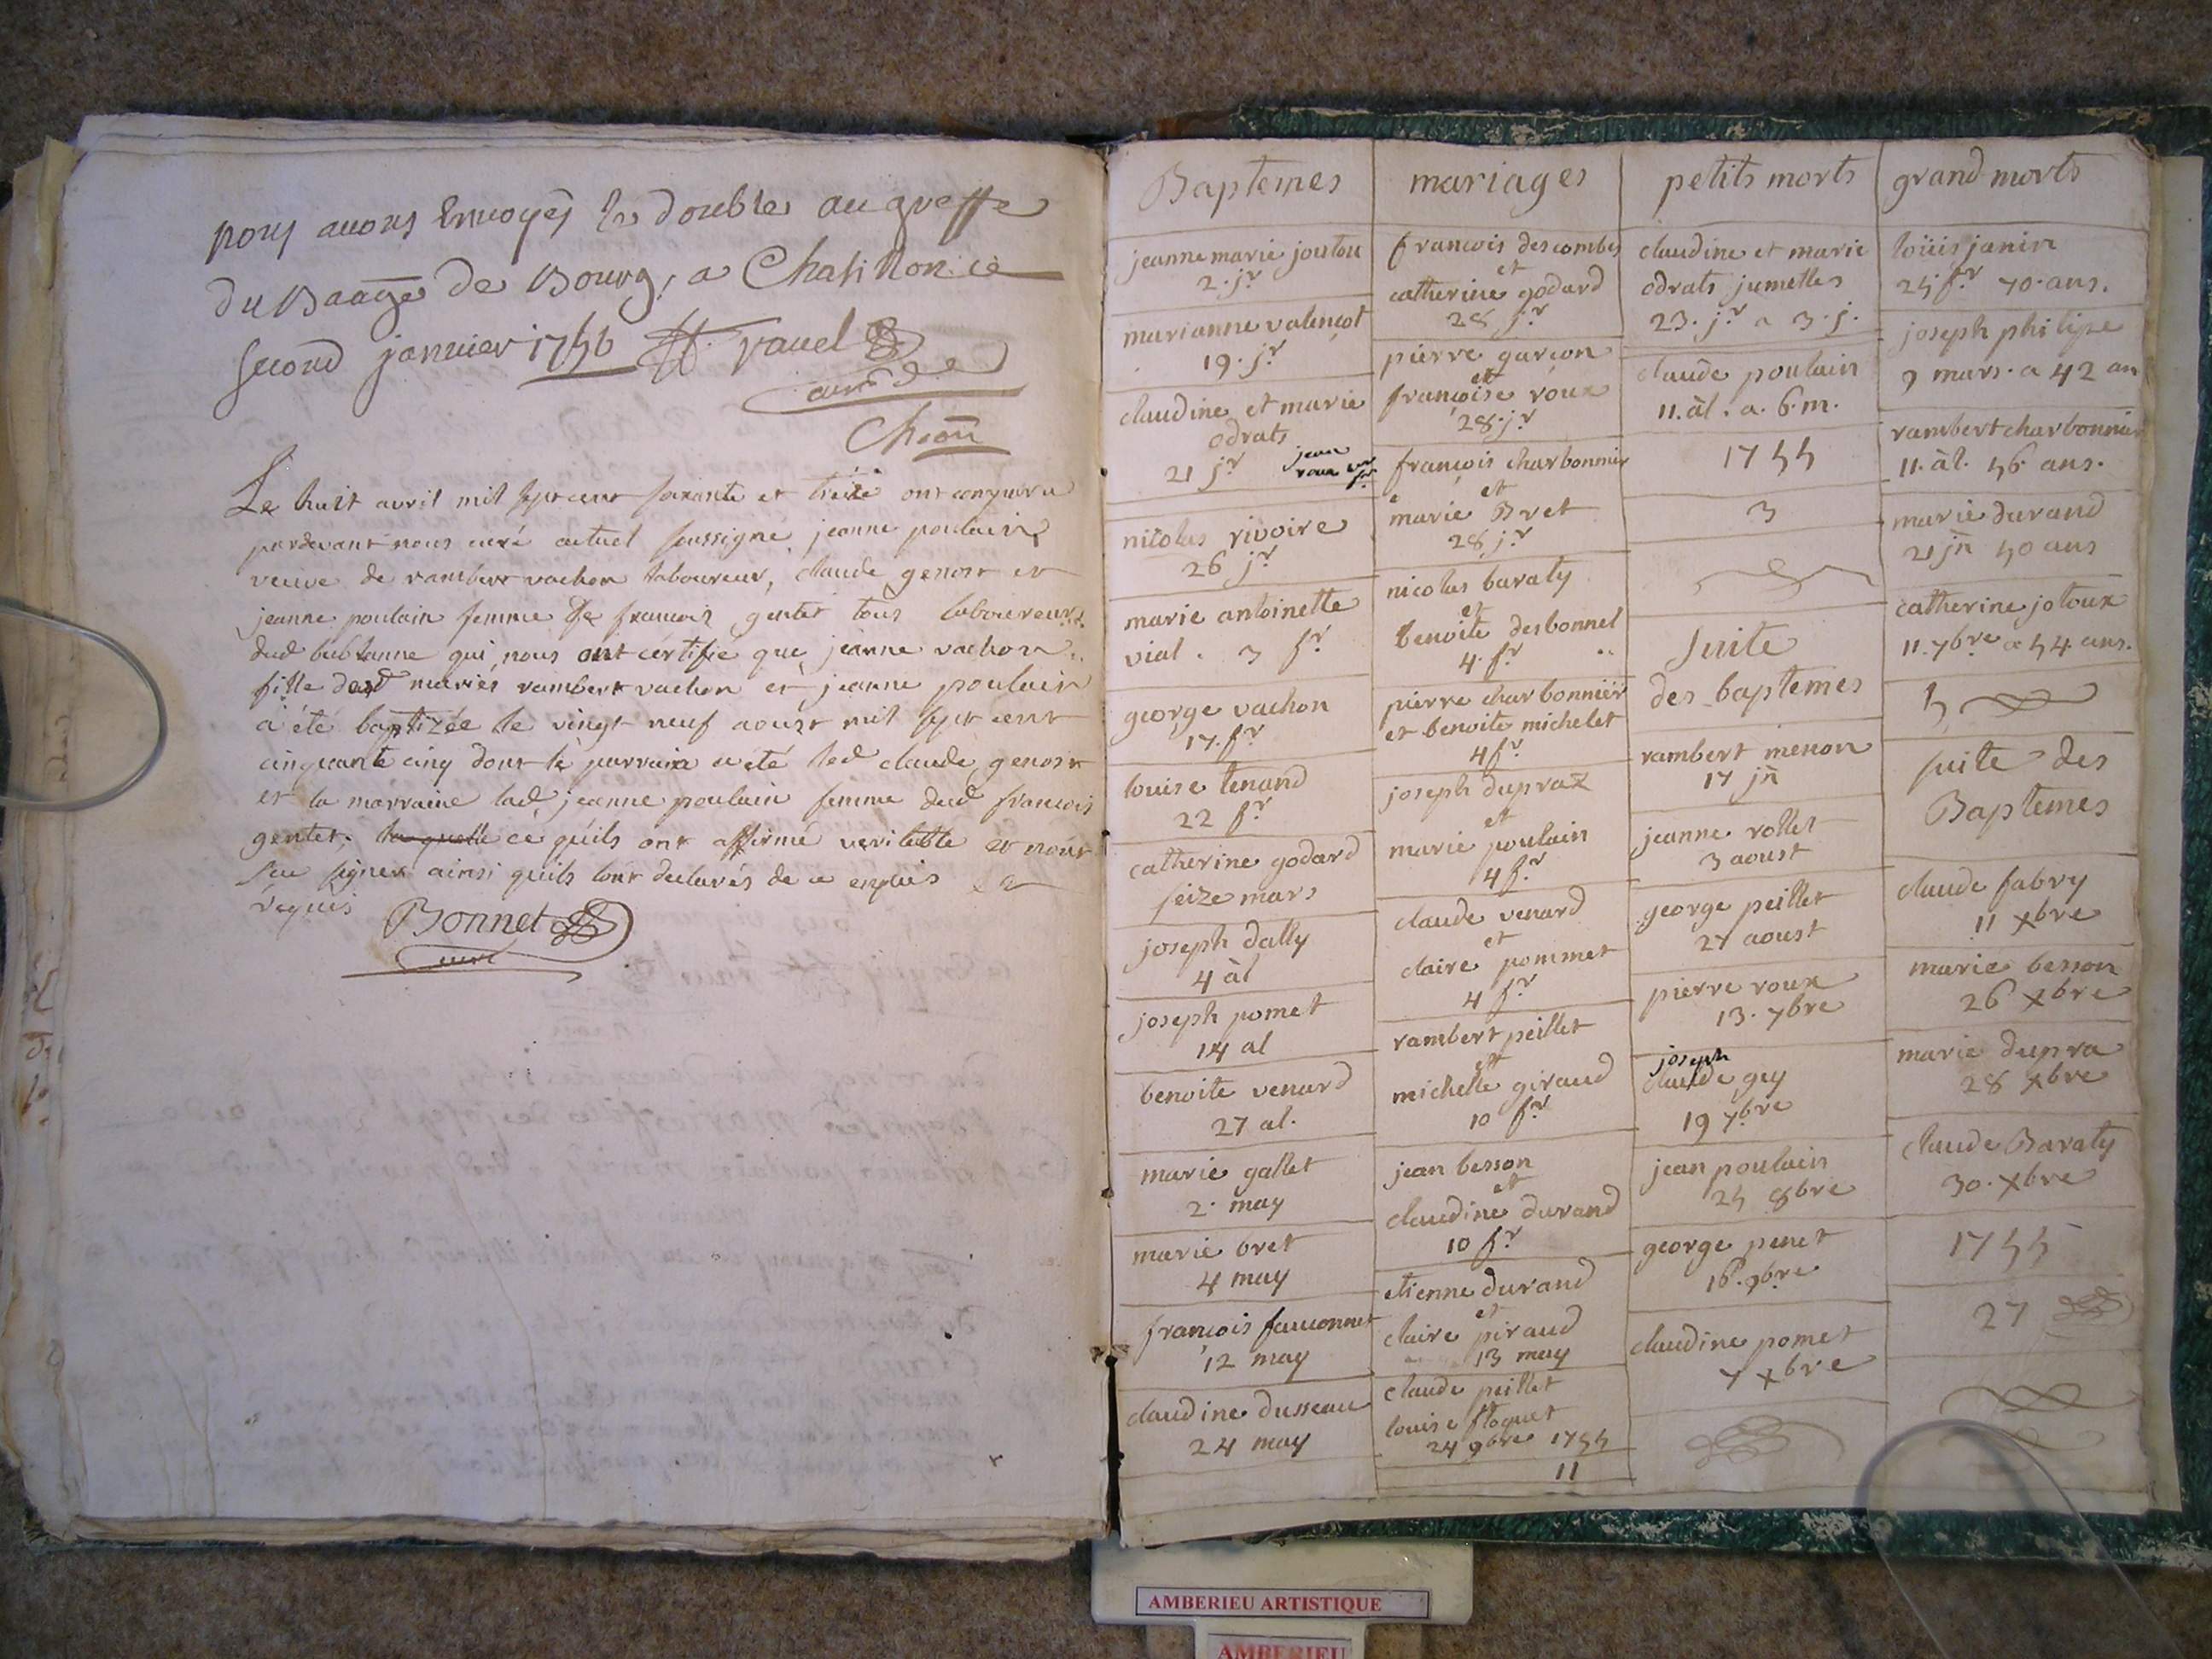 nous avons Envoyés le double au greffe
du Baage de Bourg, a Chatillon ce
second janvier 1756 ravel
curé de
Cheon
Le huit avril mil sept cent soixante et treize ont comparu
pardevant nous curé actuel soussigné jeanne poulain
veuve de rambert vachon laboureur, claude genost et
jeanne poulain femme de francois gentet tous laboureurs
dud bublanne qui nous ont certifie que jeanne vachon
fille desd maries rambert vachon et jeanne poulain
a été baptizée le vingt neuf aoust mil sept cent
cinquante cinq dont le parrain a été led claude genost
et la marraine lad jeanne poulain femme dud francois
gentet. la quelle ce quils ont affirmé veritable et nont
scu signer ainsi quils lont declarés de ce enquis et
requis
Bonnet
curé
Baptemes
jeanne marie joutou
2. jr
marianne valençot
19. jr
claudine et marie
odrats
21 jr
jean
roux
nicolas rivoire
26 jr
marie antoinette
vial. 3 fr
george vachon
17. fr
louise tenand
22 fr
catherine godard
seize mars
joseph dally
4 àl
joseph pomet
14 al
benoite venard
27 al.
marie gallet
2. may
marie bret
4 may
françois fauconnet
12 may
claudine dusseau
24 may
mariages
francois descombes
et
catherine godard
28 jr
pierre garçon
et
françoise roux
28. jr
françois charbonnier
et
marie Bret
28 jr
nicolas baraty
et
benoite desbonnel
4. fr
pierre charbonnier
et benoite michelet
4 fr
joseph dupraz
et
marie poulain
4 fr.
claude venard
et
claire pommet
4 fr
rambert peillet
et
michelle giraud
10 fr
jean besson
et
claudine durand
10 fr
etienne durand
et
claire piraud
13 may
claude peillet
et
louise floquet
24 9bre 1755
11
petits morts
claudine et marie
odrats jumelles
23. jr a 3. j.
claude poulain
11. àl. a. 6. m.
1755
3
suite
des baptemes
rambert menon
17 jn
jeanne rollet
3 aoust
george peillet
27 aoust
pierre roux
13. 7bre
joseph
claude guy
19 7bre
jean poulain
25 8bre
george penet
16. 9bre
claudine pomet
7 xbre
grand morts
loüis janin
25 fr 70. ans.
joseph philipe
9 mars. a 42 an
rambert charbonnier
11. àl. 56 ans.
marie durand
21 jn 50 ans
catherine jotoux
11. 7bre a 54. ans.
5
suite des
Baptemes
claude fabry
11 xbre
marie besson
26 xbre
marie dupra
28 xbre
claude Baraty
30. xbre
1755
27
AMBERIEU ARTISTIQUE
AMBERIEU